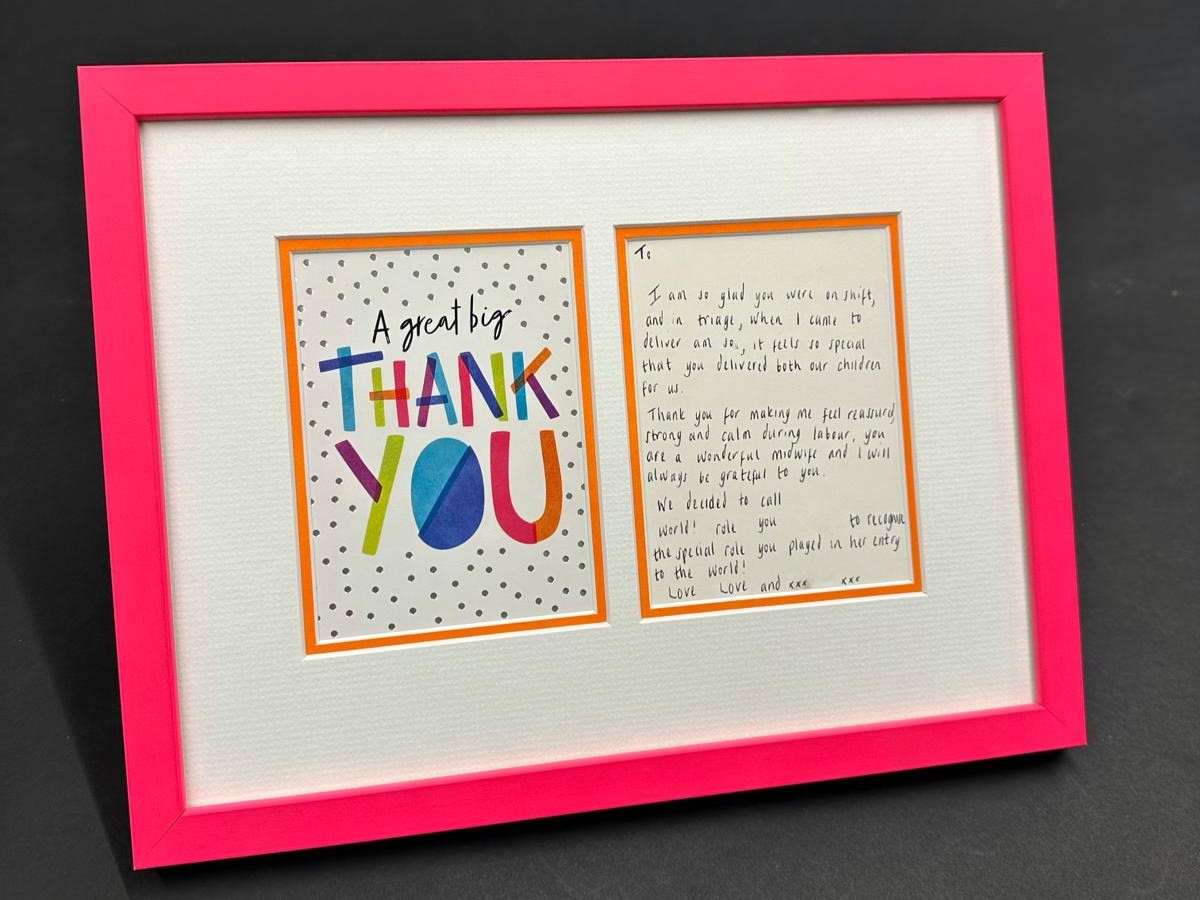 A great big
THANK
YOU
To
I am so glad you were on shift,
and in triage, when I came to
deliver am so., it feels so special
that you delivered both our children
for us.
Thank you for making me feel reassurd,
strong and calm during labour, you
are a wonderful midwife and I will
always be grateful to you.
We decided to call
world! role you to recognise
the special role you played in her entry
to the world!
Love Love and xxx xxx